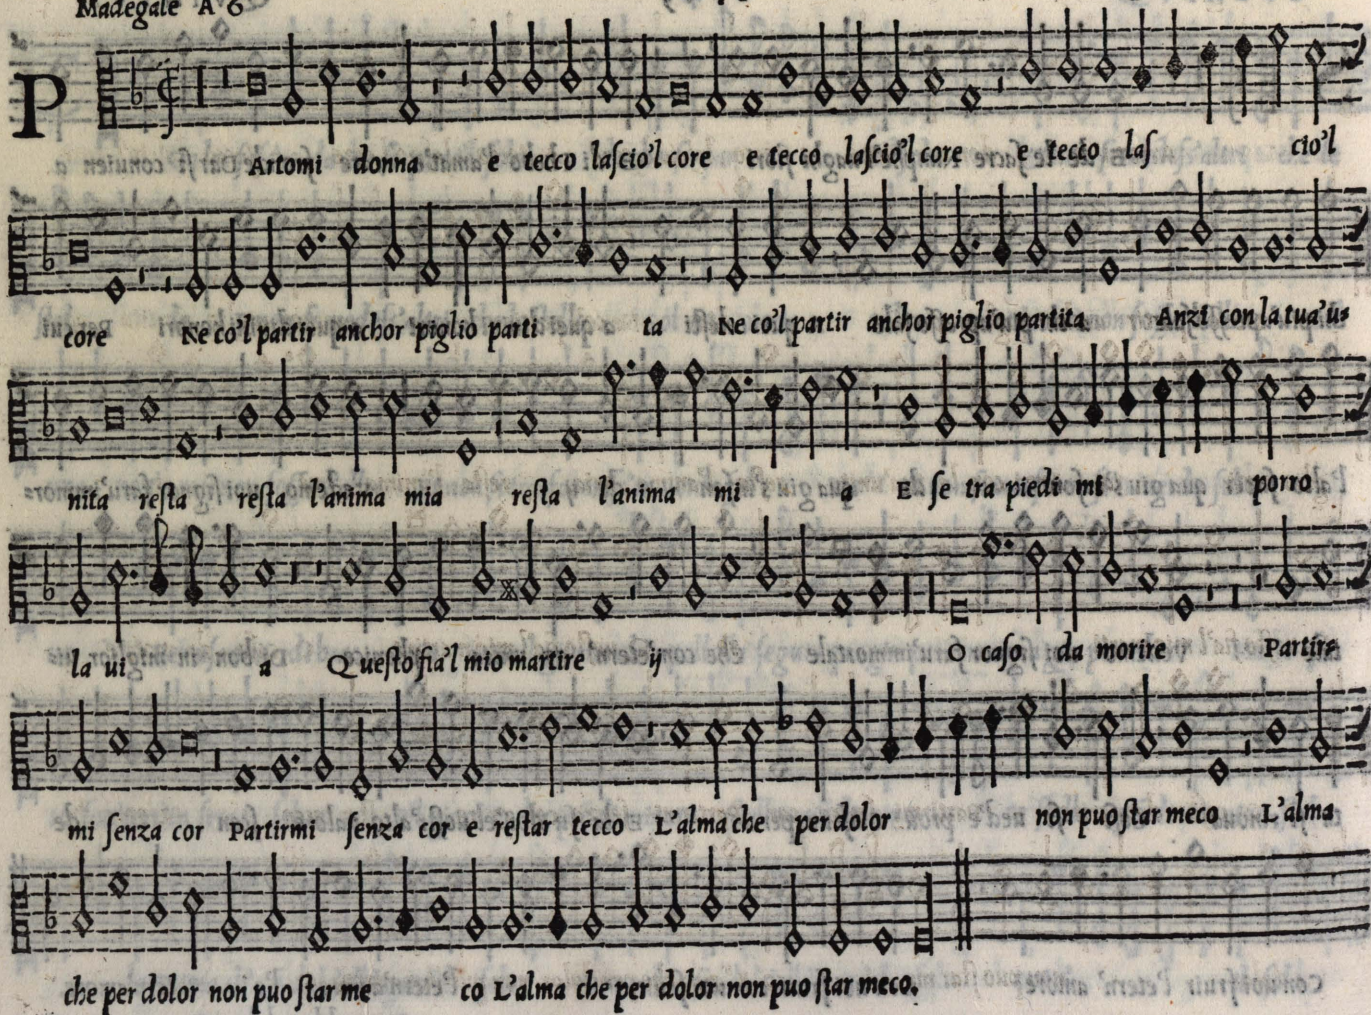 Madegale A 6
P
Artomi donna e tecco laſcio'l core e tecco laſcio'l core e tecco laſ cio'l
core Ne co'l partir anchor piglio parti ta Ne co'l partir anchor piglio partita Anzi con la tua'u=
nita reſta reſta l'anima mia reſta l'anima mi a E ſe tra piedi mi porro
la ui a Queſto fia'l mio martire ij O caſo da morire Partir=
mi ſenza cor Partirmi ſenza cor e reſtar tecco L'alma che per dolor non puo ſtar meco L'alma
che per dolor non puo ſtar me co L'alma che per dolor non puo ſtar meco.